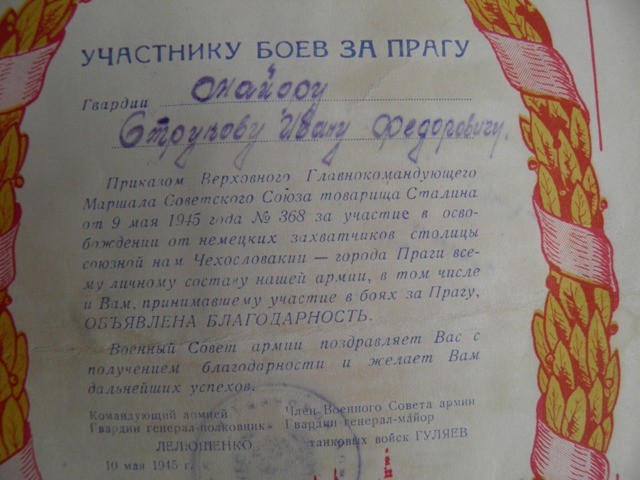 УЧАСТНИКУ БОЕВ ЗА ПРАГУ
Гвардии майору
Струкову Ивану Федоровичу.
Приказом Верховного Главнокомандующего
Маршала Советского Союза товарища Сталина
от 9 мая 1945 года № 368 за участие в осво-
бождении от немецких захватчиков столицы
союзной нам Чехословакии — города Праги все-
му личному составу нашей армии, в том числе
и Вам, принимавшему участие в боях за Прагу,
ОБЪЯВЛЕНА БЛАГОДАРНОСТЬ.
Военный Совет армии поздравляет Вас с
получением благодарности и желает Вам
дальнейших успехов.
Командующий армией
Гвардии генерал-полковник
ЛЕЛЮШЕНКО
Член Военного Совета армии
Гвардии генерал-майор
танковых войск ГУЛЯЕВ
10 мая 1945 г.